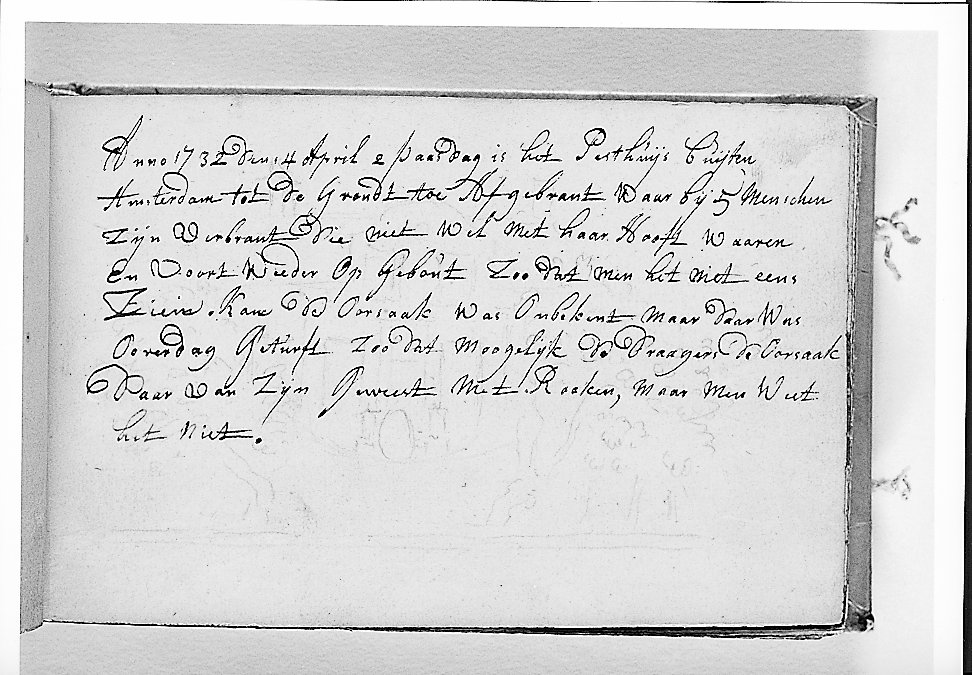 Anno 1732 den 14 April 2 paasdag is het Pesthuijs buijten
Amsterdam tot de Grondt toe Afgebrant waar bij 5 Menschen
Zijn Verbrant die niet Wel Met haar Hooft Waaren
En Voort Weeder Op Gebout Zoo dat men het niet eens
Zien Kan de Oorsaak Was Onbekent Maar daar Was
Overdag Geturft Zoo dat Moogelijk de Draagers de Oorsaak
Daar Van Zijn Geweest Met Rooken, Maar Men Weet
het Niet.